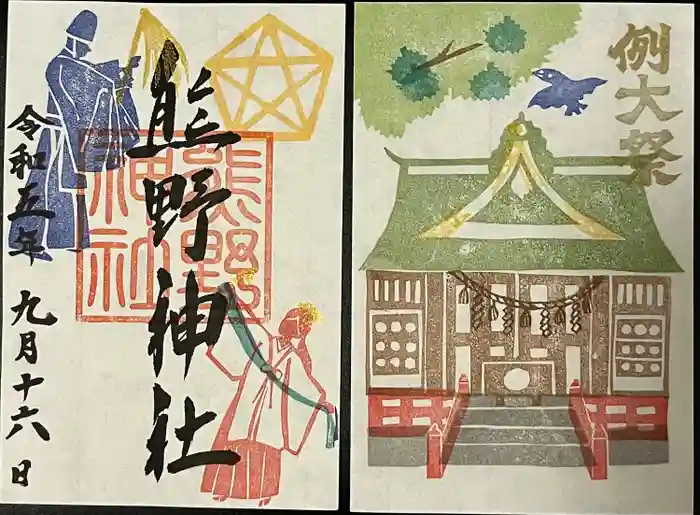 熊野神社
令和五年 九月十六日
熊野
神社
例大祭